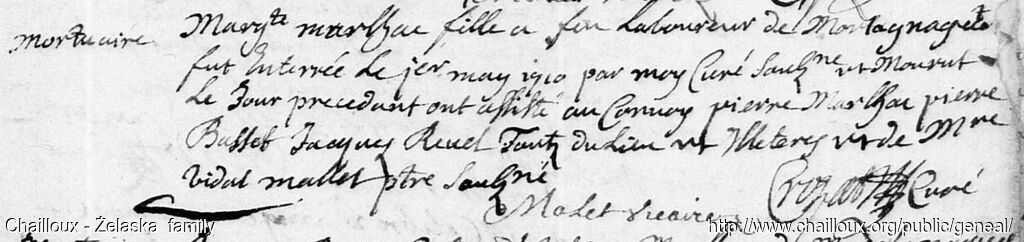 mortuaire
Margte marlhac fille a feu Laboureur de Mortagnagete
fut Enterrée Le jer may 1710 par moy Curé sousne et Mourut
Le Jour precedant ont assisté au Convoy pierre Marlhac pierre
Basset Jacques Revel Touts du Lieu et Illeteres et de Mre
vidal mallet ptre sousné
Malet vicaire Curé
Chailloux - Żelaska family http://www.chailloux.org/public/geneal/